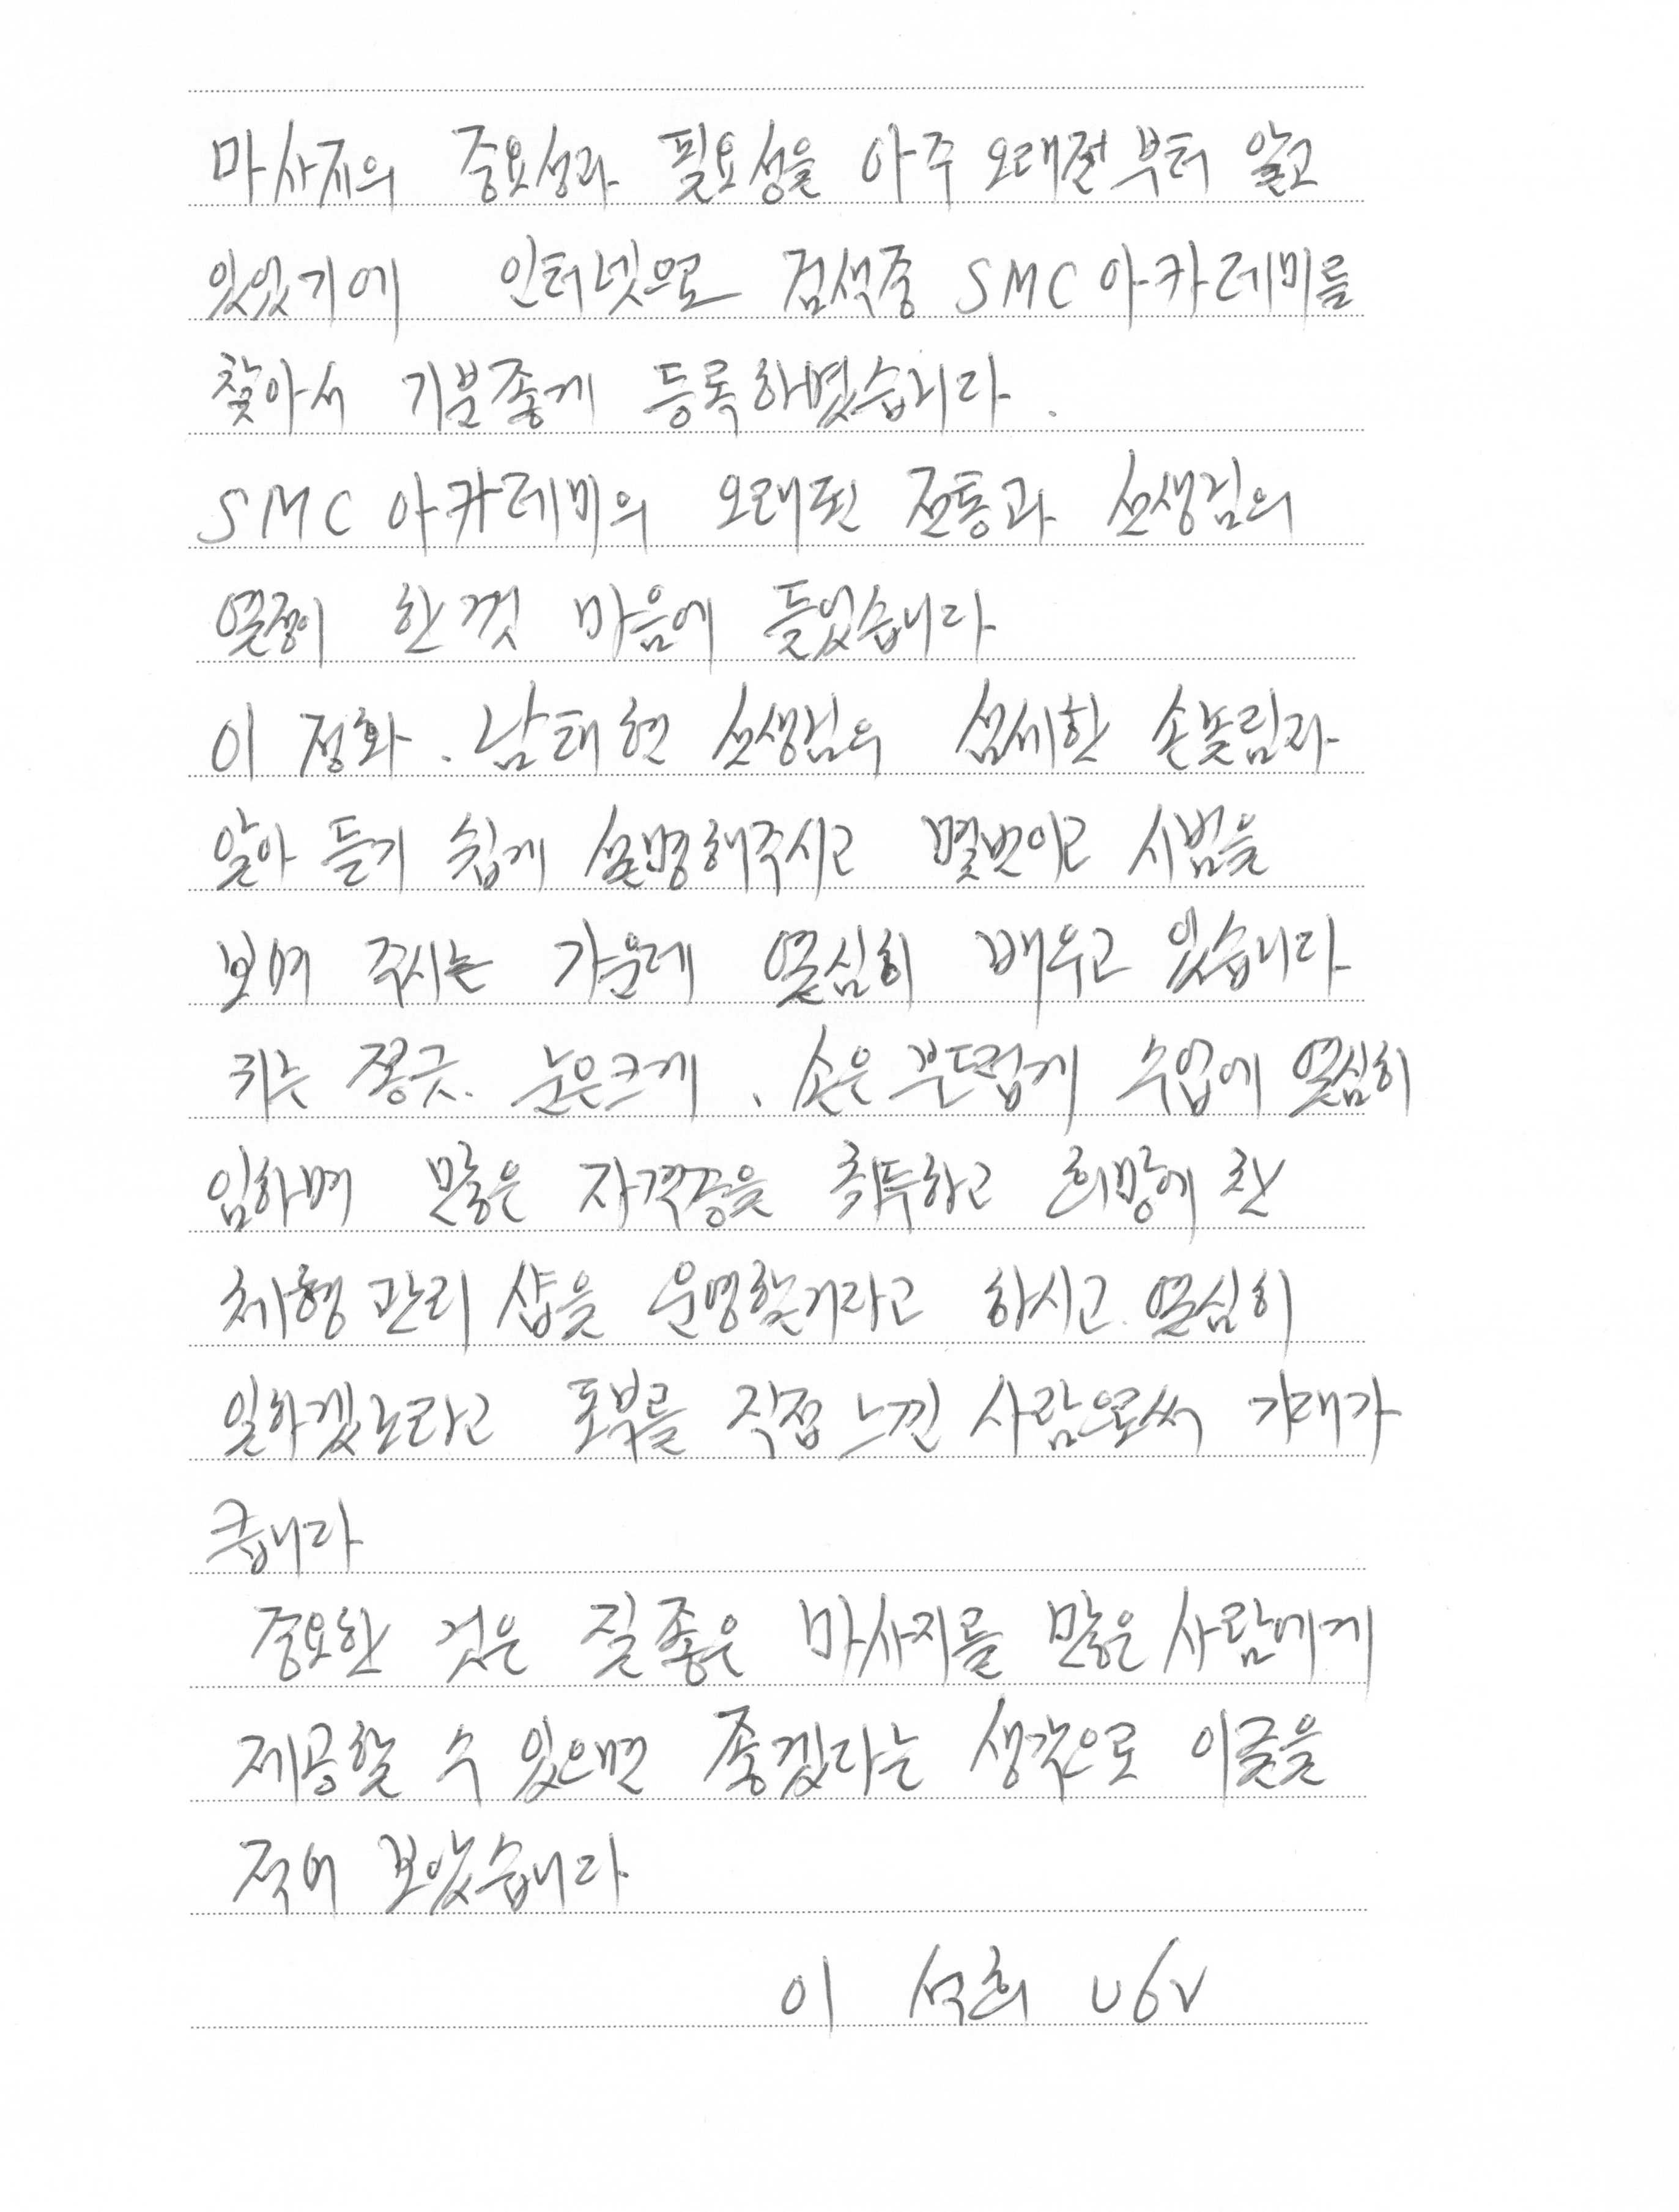 마사지의 중요성과 필요성을 아주 오래전부터 알고
있었기에 인터넷으로 검색중 SMC 아카데미를
찾아서 기분좋게 등록하였습니다.
SMC 아카데미의 오래된 전통과 선생님의
열정이 한껏 마음에 들었습니다
이정화. 남태현 선생님의 섬세한 손놀림과
알아 듣기 쉽게 설명해주시고 몇번이고 시범을
보여 주시는 가운데 열심히 배우고 있습니다
귀는 쫑긋. 눈은크게. 손은 부드럽게 수업에 열심히
임하며 많은 자격증을 취득하고 희망에 찬
체형관리 샵을 운영할거라고 하시고. 열심히
일하겠노라고 포부를 직접 느낀 사람으로써 기대가
큽니다
중요한 것은 질좋은 마사지를 많은 사람에게
제공할 수 있으면 좋겠다는 생각으로 이글을
적어 보았습니다
이 석희